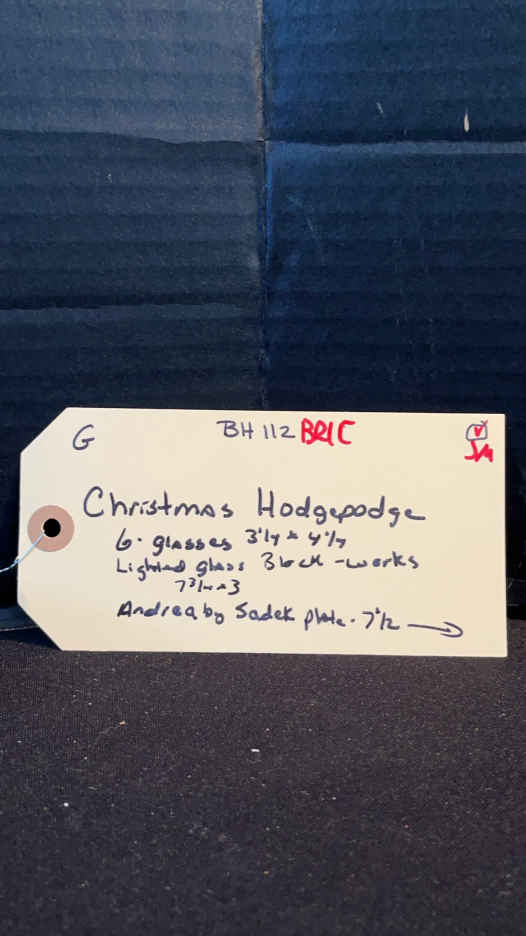 G BH 112 BRIC
Christmas Hodgepodge
6 · glasses 3 1/4 x 4 1/4
Lighted glass Block - works
7 3/4 x 3
Andrea by Sadek plate · 7 1/2 →